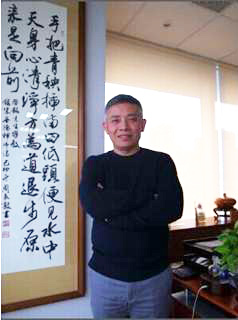 手把青秧插滿田低頭便見水中
天身心清淨方為道退步原
來是向前